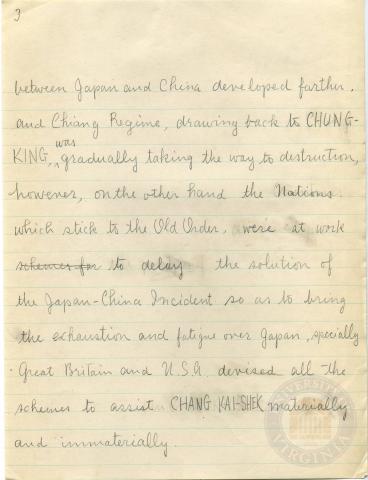 3
between Japan and China developed farther.
and Chiang Regime, drawing back to CHUNG-
KING, was gradually taking the way to destruction,
however, on the other hand the Nations
which stick to the Old Order, were at work
schemes for to delay the solution of
the Japan-China Incident so as to bring
the exhaustion and fatigue over Japan, specially
Great Britain and U.S.A. devised all the
schemes to assist CHANG KAI-SHEK materially
and immaterially.
UNIVERSITY
VIRGINIA